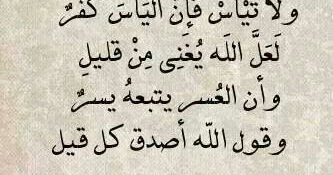 ولا تَيْأسْ فإن اليَأسَ كفرٌ
لَعَلَّ اللَه يُغْنِى مِنْ قليلِ
وأن العُسر يتبعهُ يسرٌ
وقول اللّه أصدق كل قيل